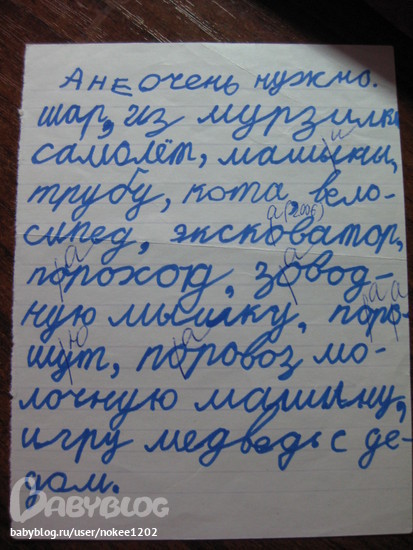 А НЕ ОЧЕНЬ нужно.
шар, из мурзилки
самолёт, машыны,
и
трубу, кота, вело-
а (2006)
сипед, эксковатор,
а
пороход, зовод-
а
ную мышку, поро-
а а
ю
шут, поровоз мо-
а
лочную машыну,
игру медведь с де-
дом.
BABYBLOG
babyblog.ru/user/nokee1202